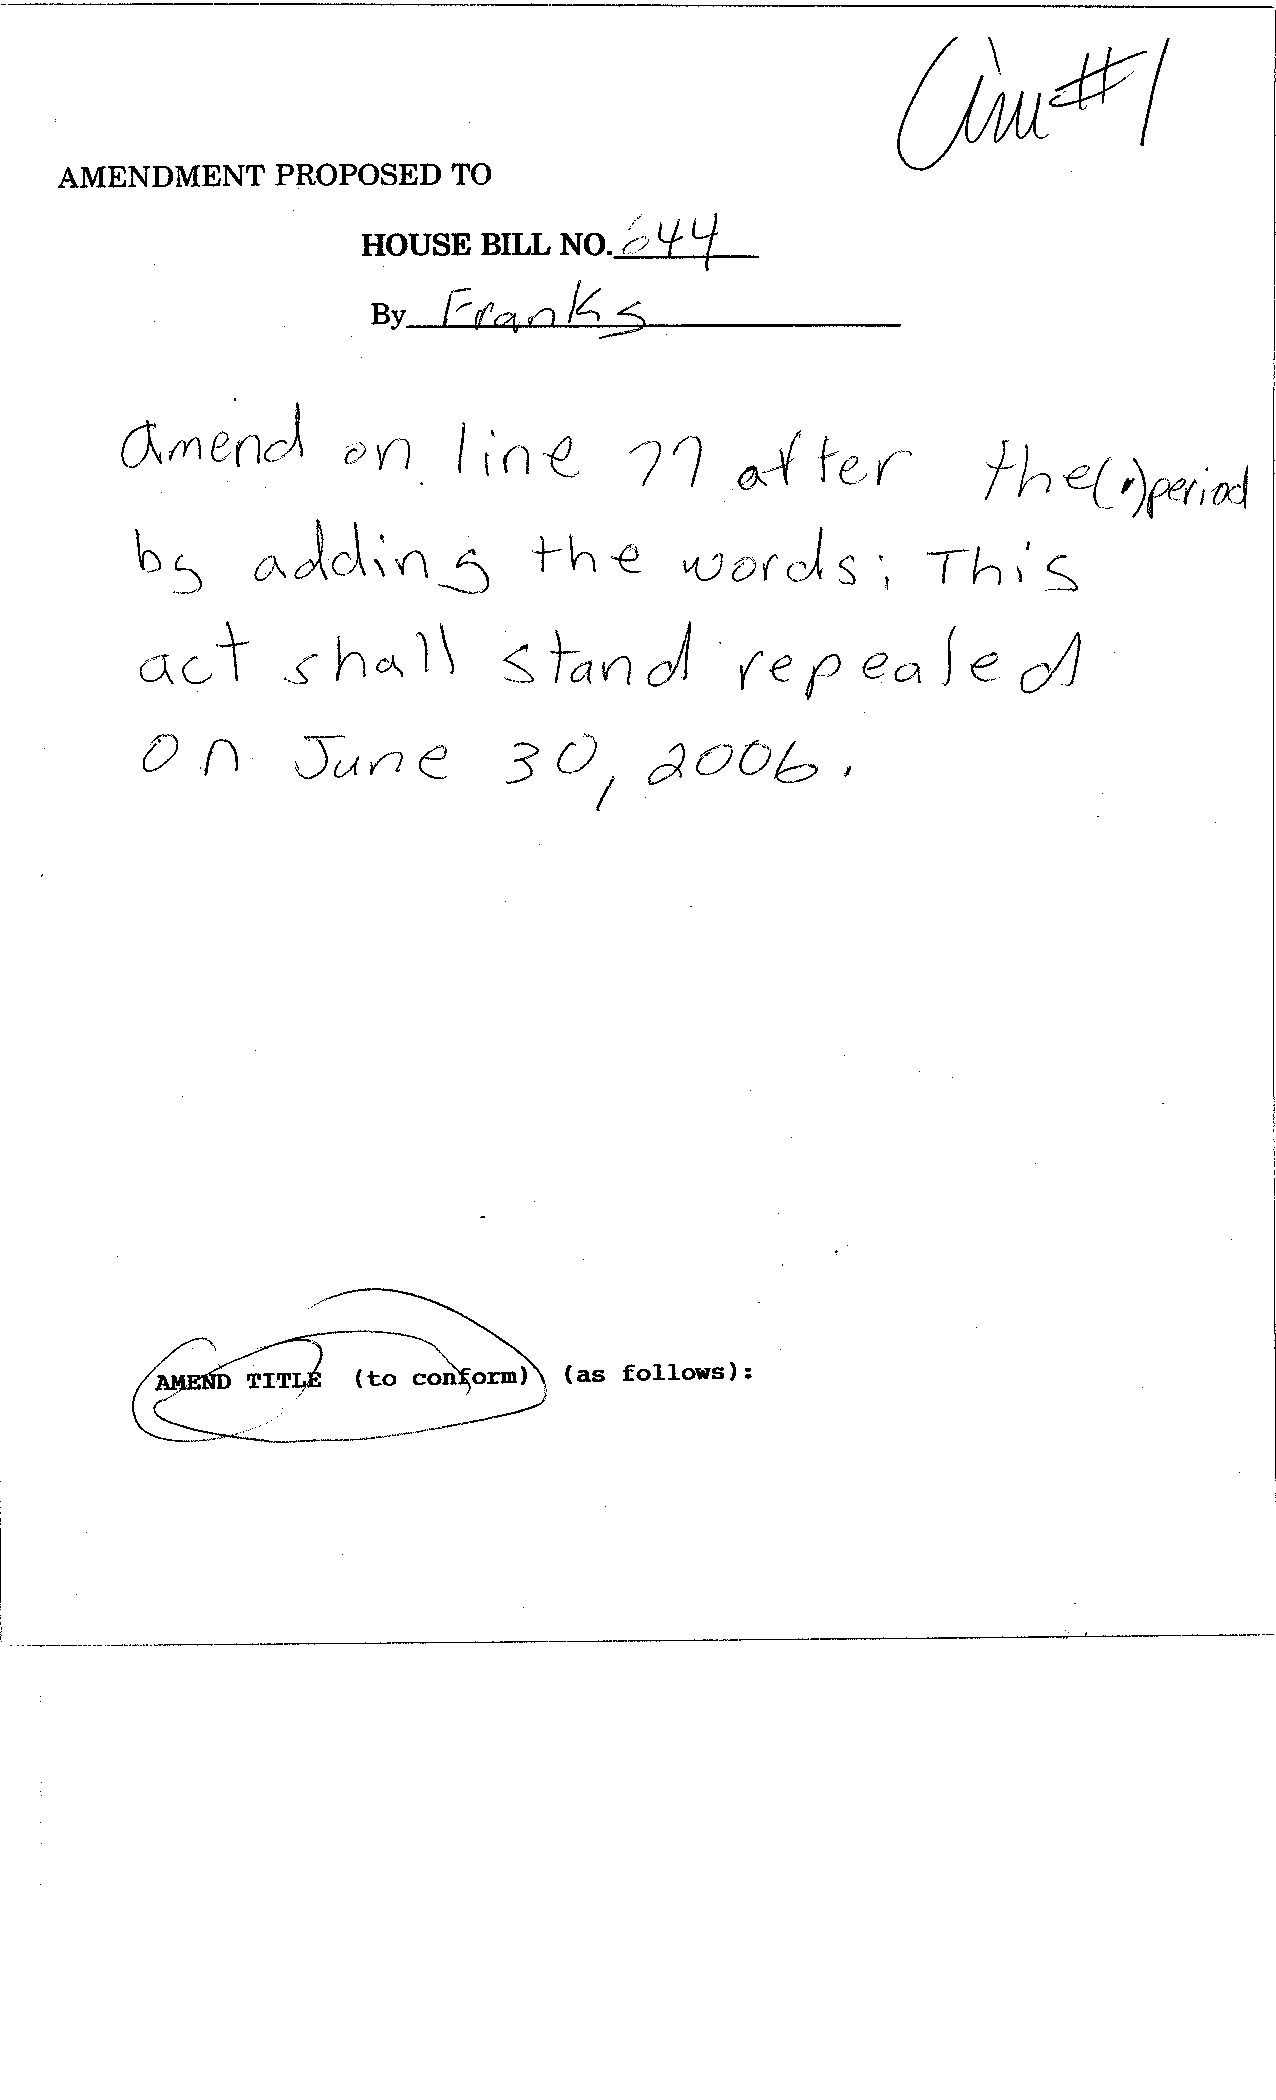 Am #1
AMENDMENT PROPOSED TO
HOUSE BILL NO. 644
By Franks
Amend on line 77 after the (.) period
by adding the words: This
act shall stand repealed
on June 30, 2006.
AMEND TITLE (to conform) (as follows):